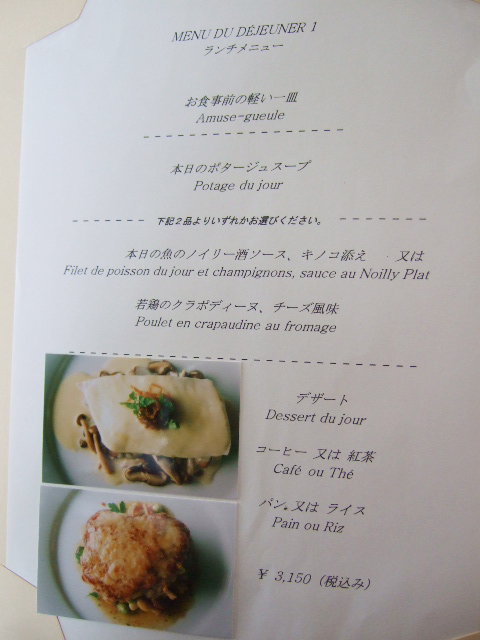 MENU DU DÉJEUNER 1
ランチメニュー
お食事前の軽い一皿
Amuse-gueule
本日のポタージュスープ
Potage du jour
下記２品よりいずれかお選びください。
本日の魚のノイリー酒ソース、キノコ添え 又は
Filet de poisson du jour et champignons, sauce au Noilly Plat
若鶏のクラポディーヌ、チーズ風味
Poulet en crapaudine au fromage
デザート
Dessert du jour
コーヒー 又は 紅茶
Café ou Thé
パン。又は ライス
Pain ou Riz
￥ 3,150 (税込み)